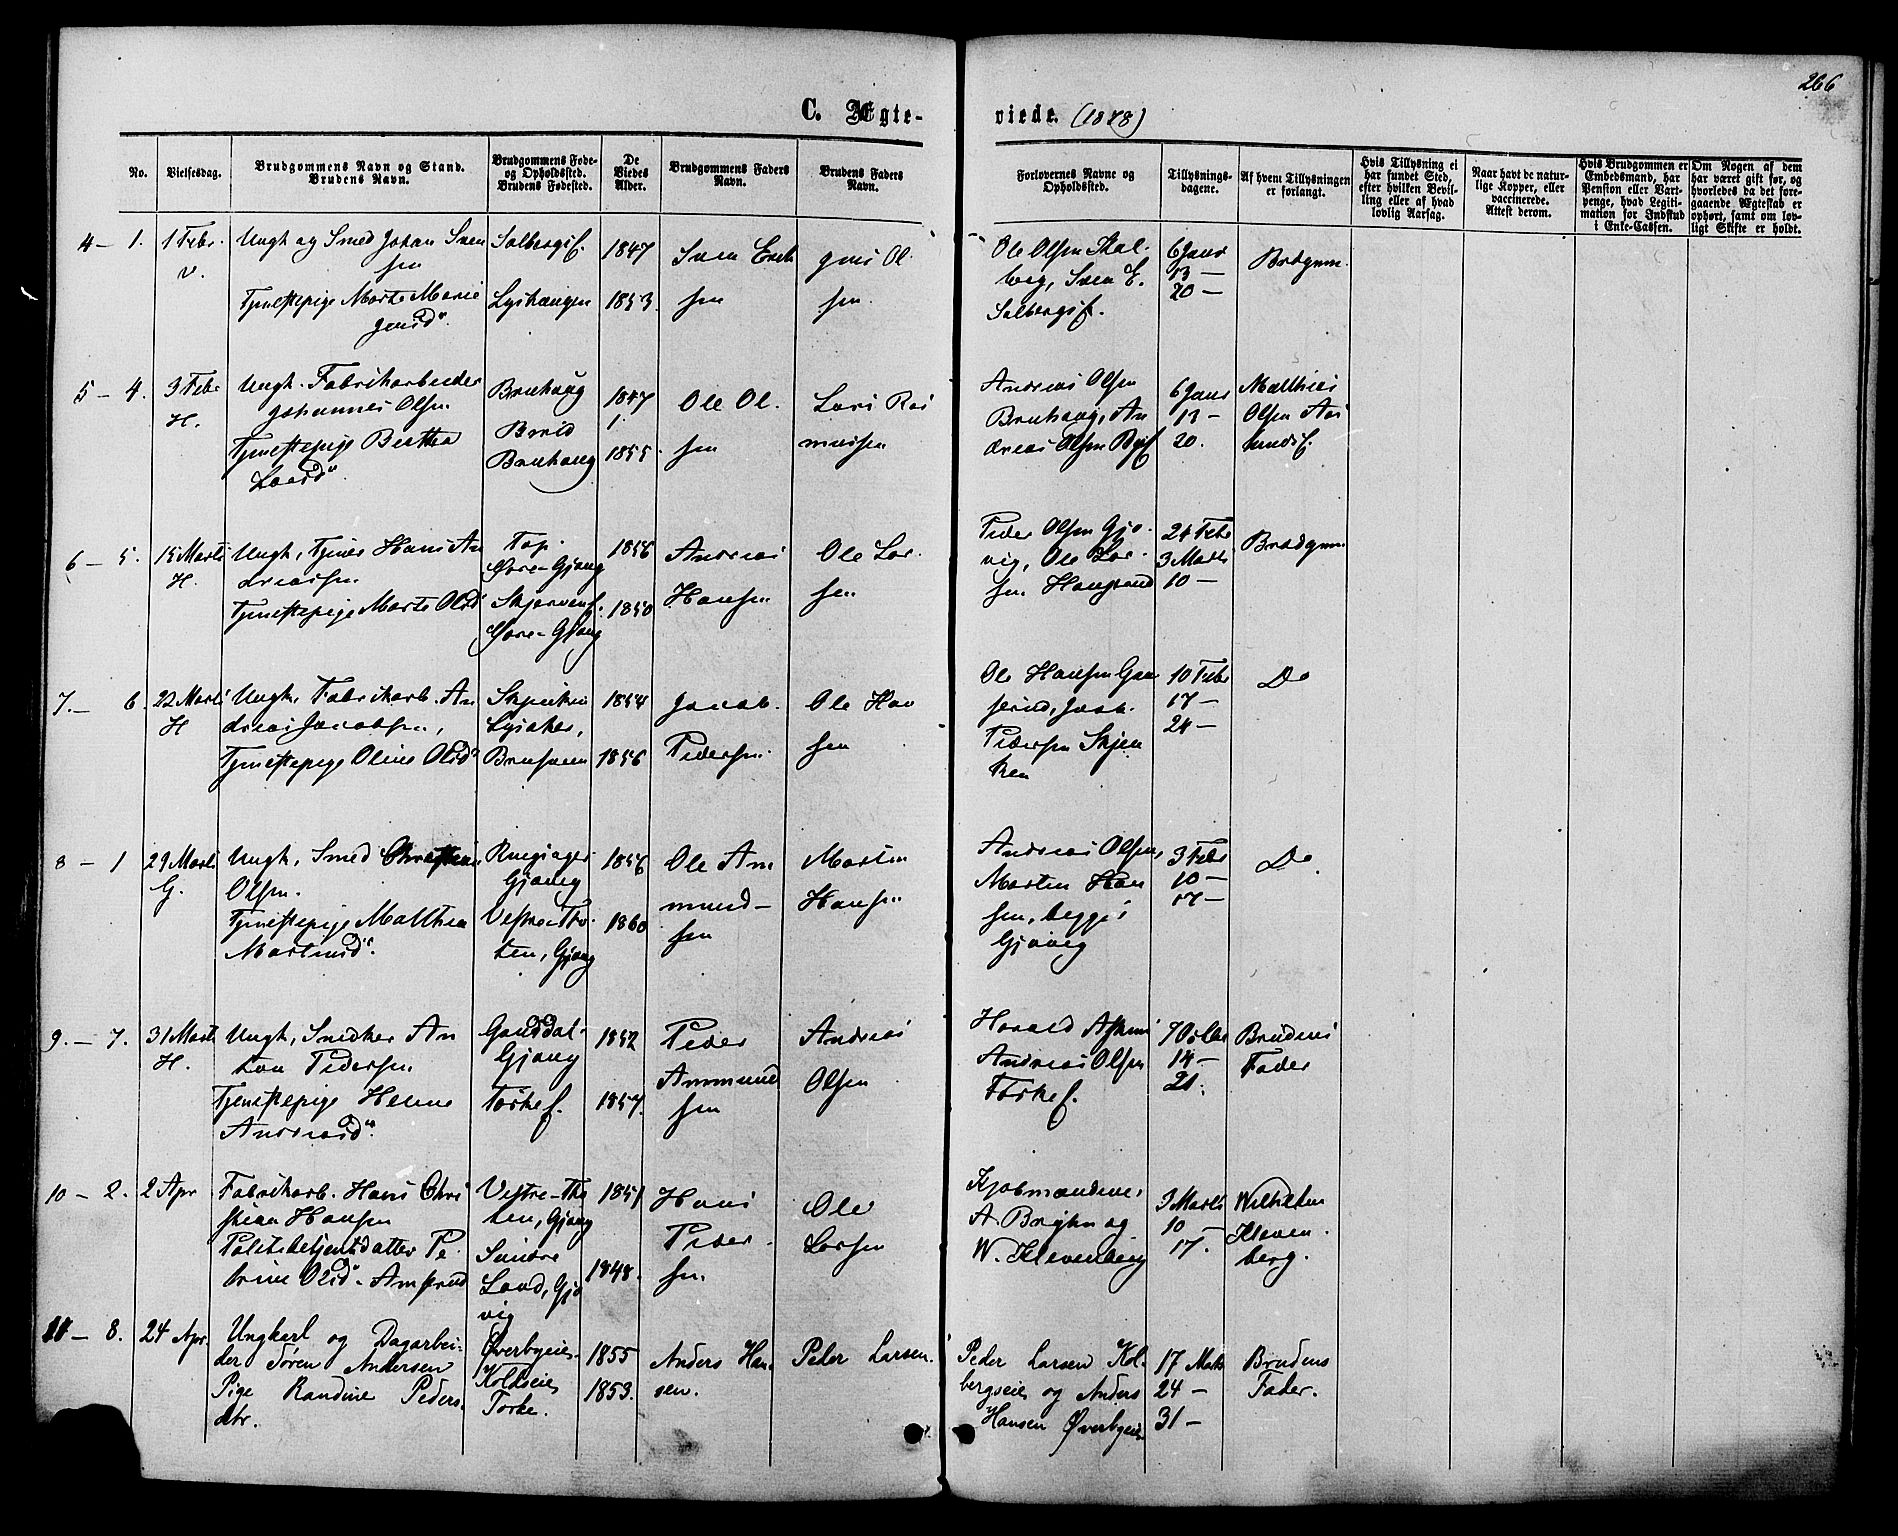 266
C. Ægte-
viede. (1878)
No.
Vielsesdag.
Brudgommens Navn og Stand.
Brudens Navn.
Brudgommens Føde-
og Opholdssted.
Brudens Fødested.
De
Viedes
Alder.
Brudgommens Faders
Navn.
Brudens Faders
Navn.
Forlovernes Navne og
Opholdssted.
Tillysnings-
dagene.
Af hvem Tillysningen
er forlangt.
Hvis Tillysning ei
har fundet Sted,
efter hvilken Bevil-
ling eller af hvad
lovlig Aarsag.
Naar havt de natur-
lige Kopper, eller
vaccinerede.
Attest derom.
Hvis Brudgommen er
Embedsmand, har
Pension eller Vart-
penge, hvad Legiti-
mation for Indskud
i Enke-Cassen.
Om Nogen af dem
har været gift før, og
hvorledes da det fore-
gaaende Ægteskab er
ophørt, samt om lov-
ligt Skifte er holdt.
4 – 1.
1 Febr.
V.
Ungk og Smed Johan Sven
sen
Tjenestepige Marte Marie
Solbergsf.
1847
1853.
Sven Erik
sen
Ol.
sen.
Ole Olsen
berg, Sven E.
Solbergsf.
6 Janr
13 –
20 –
Brudgom.
5 – 4.
3 Febr
H.
Ungk. Fabrikarbeider
Johannes Olsen
Tjenestepige Berthea
Larsd.
Bruhaug
Bruhaug
1847
1855.
Ole Ol.
sen
Lars Ras
mussen
Andreas Olsen
Bruhaug, An
dreas Olsen
6 Janr
13 –
20.
Matthias
Olsen
6 – 5.
15 Marts
H.
Ungk, Tjener Hans An
dreassen
Tjenestepige Marte Olsd
Top.
1856
1850
Andreas
Hansen
Ole Lar.
sen
Peder Olsen Gjø.
vig, Ole Lar.
sen Haugsrud
24 Febr
3 Marts
10 –
Brudgom
7. – 6.
22 Marts
H
Ungk, Fabrikarb. An
dreas Jacobsen,
Tjenestepige Oline Olsd
Skjenken
Lysaker,
1854
1856
Jacob.
Pedersen
Ole Han
sen
Ole Hansen
Jacob.
Pedersen Skjen
ken
10 Febr
17 –
24 –
Do
8 – 1
29 Marts
G.
Ungk, Smed Christian
Olsen.
Tjenestepige Matthea
Martinsd.
Gjøvig
Vestre Tho.
ten, Gjøvig
1856
1860
Ole Am
mund–
sen
Morten
Hansen
Andreas Olsen,
Morten Han
sen, begges
Gjøvig
3 Febr
10 –
17 –
Do
9. – 7.
31 Marts
H.
Ungk, Snedker An
ton Pedersen
Tjenestepige Helene
Andreasd.
Gjøvig
1852
1857.
Peder
Ammund
sen
Andreas
Olsen
Harald
Andreas Olsen
7 Octbr
14 –
21.
Brudens
Fader
10 – 2.
2 Apr
Fabrikarb. Hans Chri
stian Hansen
Politibetjentsdatter Pe.
trine Olsd.
Vestre–Tho
ten, Gjøvig
Søndre
Land, Gjø
vig
1851
1848.
Hans
Peder.
sen.
Ole
Larsen
Kjøbmændene,
A. Bryhn og
W. Klevenberg
3 Marts
10 –
17.
Wilhelm
Kleven.
berg.
11 – 8.
24 Apr.
Ungkarl og Dagarbei-
der Søren Andersen
Pige Randine Peders.
dtr.
Øverbyeie,
1855
1853.
Anders Han-
sen.
Peder Larsen.
Peder Larsen Kol-
bergseie og Anders
Hansen Øverbyeie.
17 Marts
24 –
31 –
Brudens
Fader.